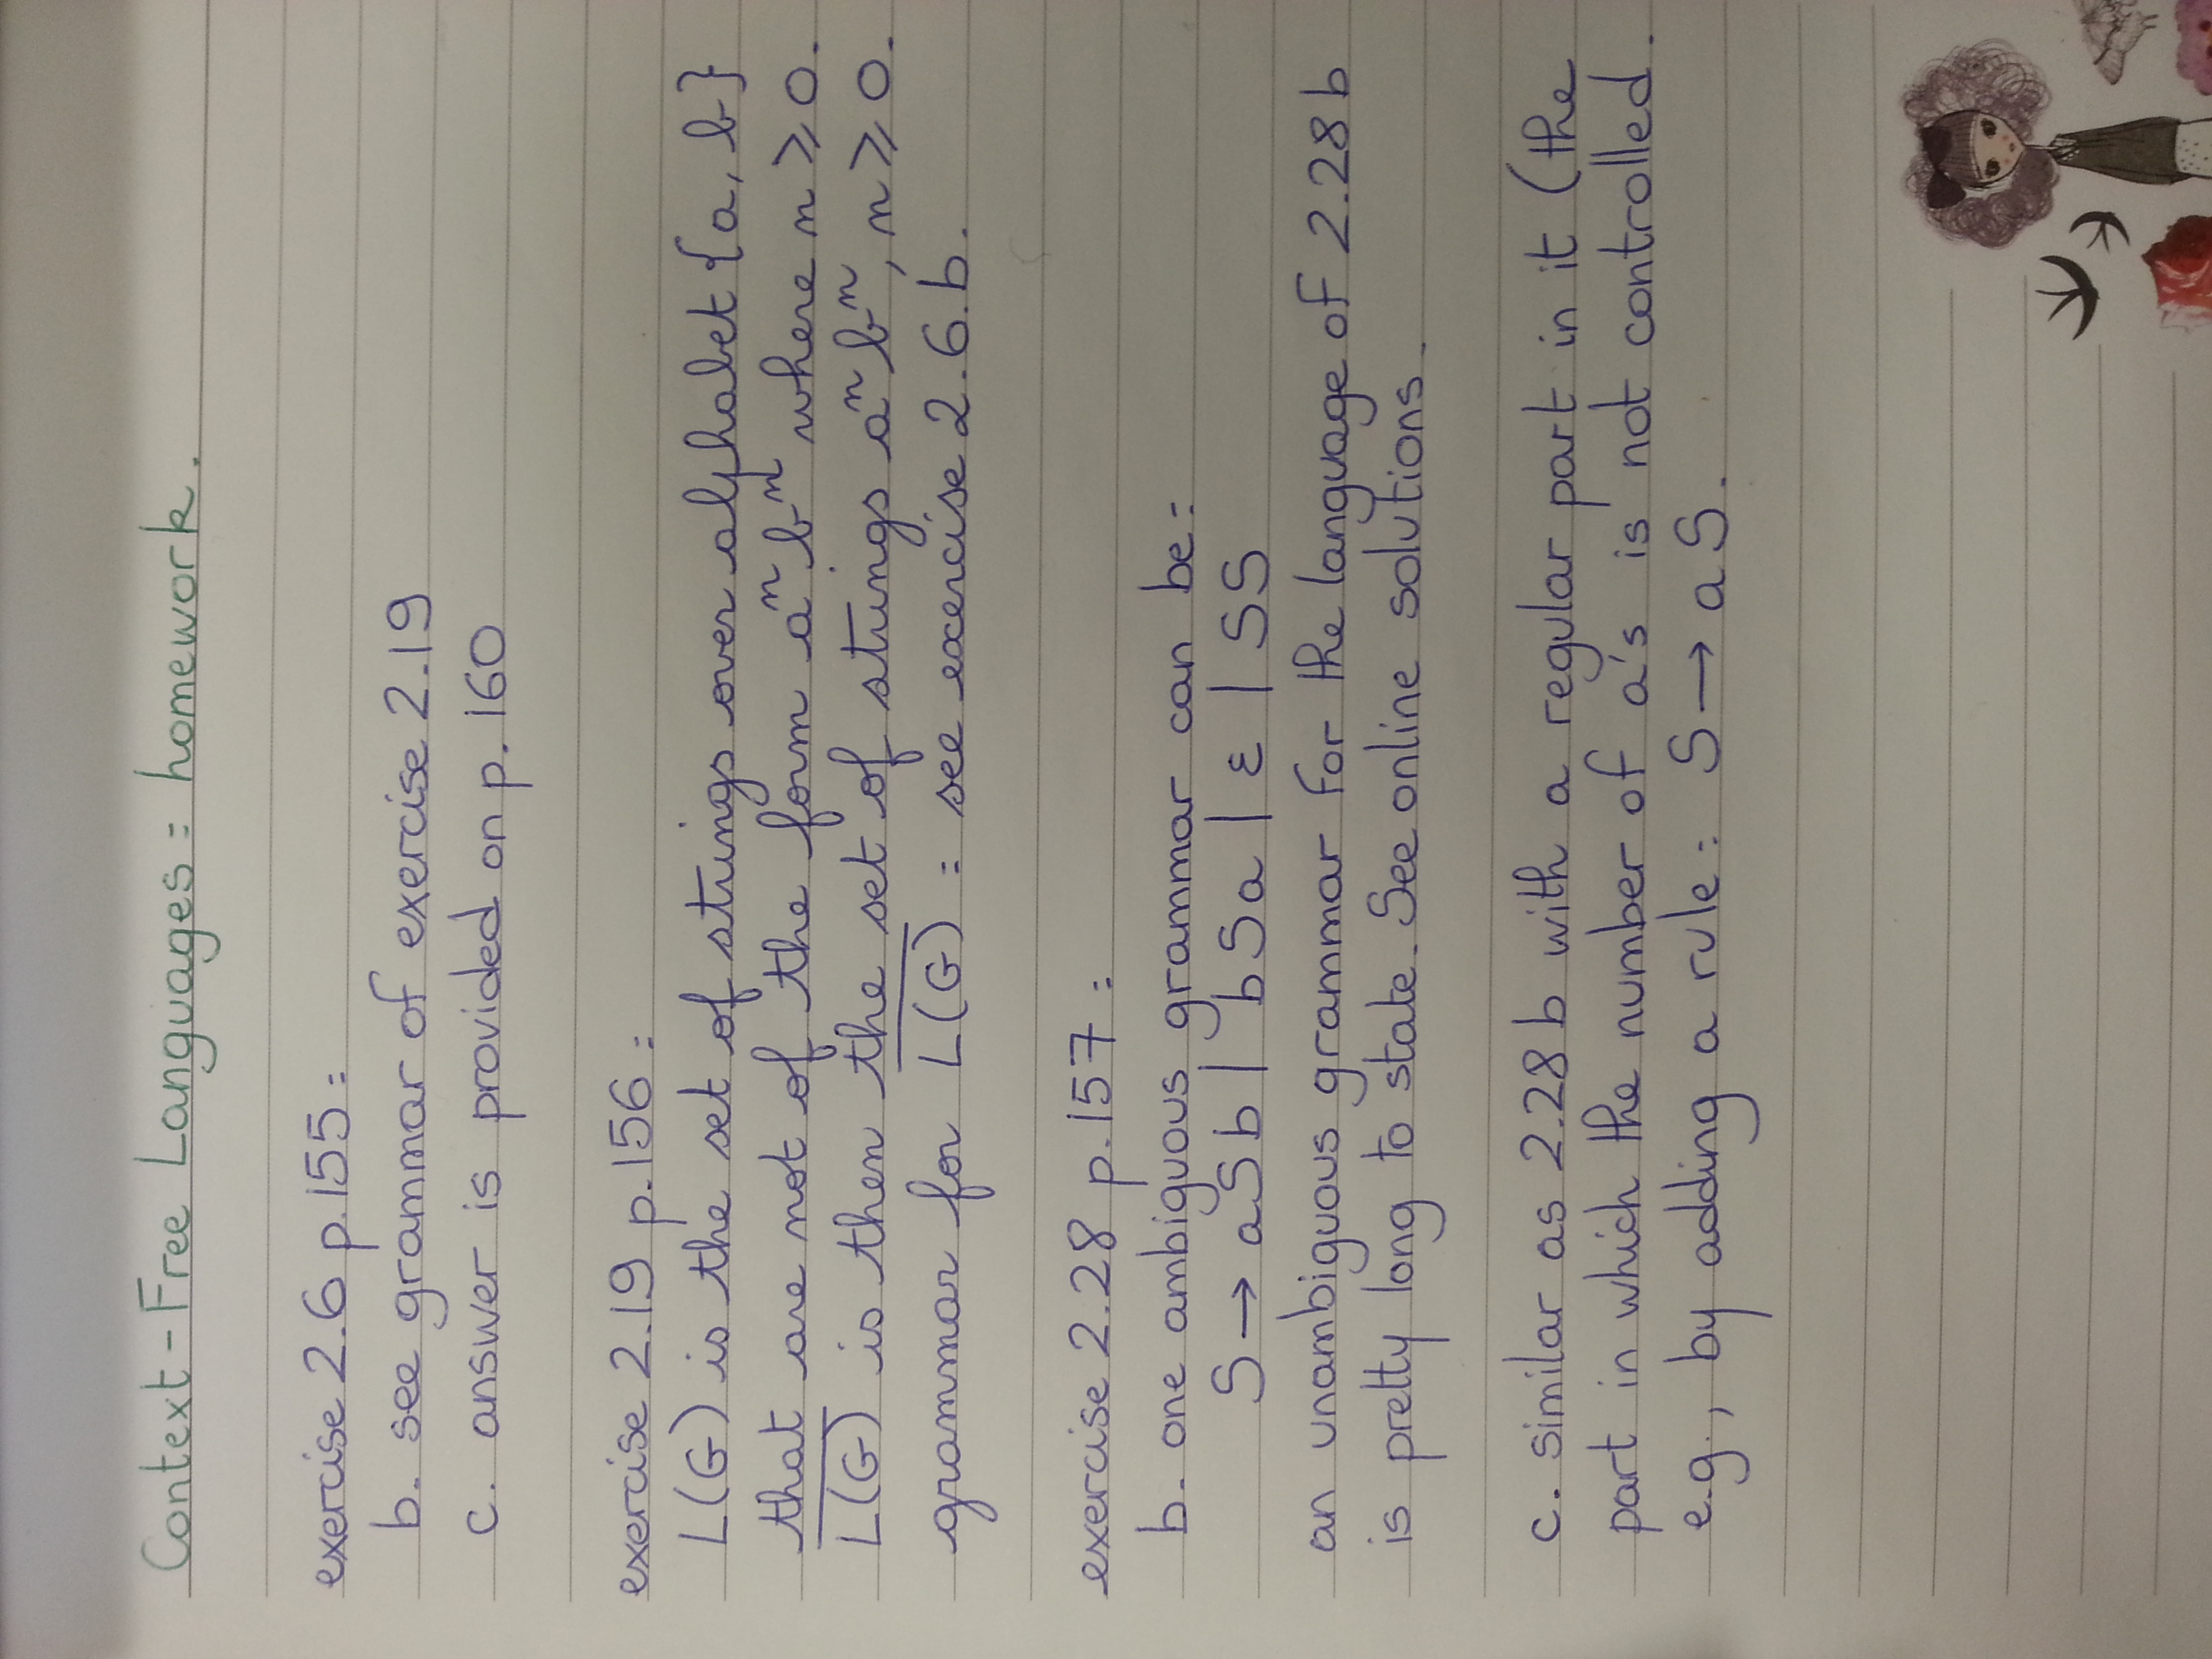 Context-Free Languages: homework.
exercise 2.6 p.155:
b. see grammar of exercise 2.19
c. answer is provided on p.160
exercise 2.19 p.156:
L(G) is the set of strings over alphabet {a, b}
that are not of the form aⁿbⁿ where n ≥ 0.
L(G)̅ is then the set of strings aⁿbⁿ, n ≥ 0.
grammar for L(G)̅ : see exercise 2.6.b.
exercise 2.28 p.157:
b. one ambiguous grammar can be:
S → aSb | bSa | ε | SS
an unambiguous grammar for the language of 2.28b
is pretty long to state. See online solutions.
c. similar as 2.28b with a regular part in it (the
part in which the number of a's is not controlled.
e.g, by adding a rule: S → aS.